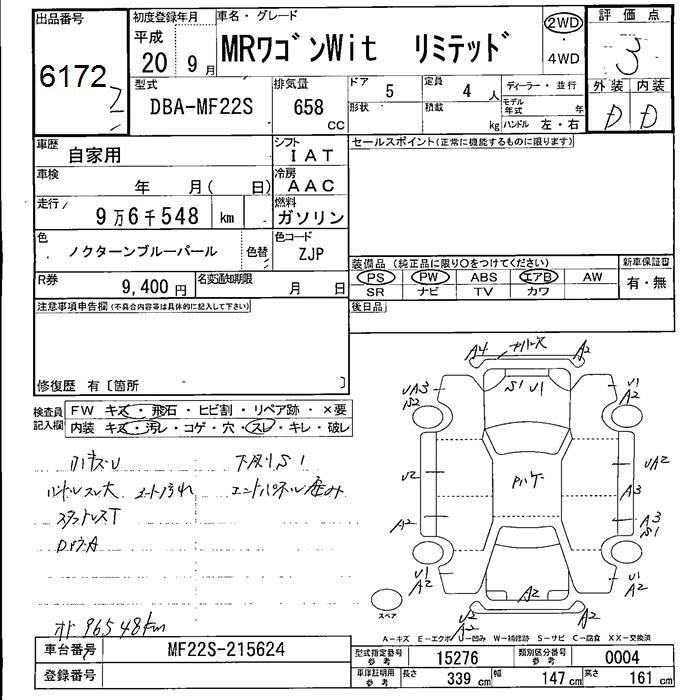 出品番号 初度登録年月 車名・グレード 評価点
平成 20年 9月 MRワゴンWit リミテッド 2WD・4WD 3
6172
型式 排気量 ドア 5 定員 4人 ディーラー・並行 外装 内装
DBA-MF22S 658 CC 形状 積載 kg モデル年式 年 D D
ハンドル 左・右
車歴 自家用 シフト IAT セールスポイント(正常に機能するものに限ります)
車検 年 月( 日) 冷房 AAC
走行 9万6千548 km 燃料 ガソリン
色 ノクターンブルーパール 色替 色コード ZJP
装備品(純正品に限り○をつけてください) 新車保証書
R券 9,400円 名変通知期限 月 日 PS PW ABS エアB AW 有・無
SR ナビ TV カワ
注意事項申告欄(不具合内容等は具体的に記入して下さい) 後日品
修復歴 有〔箇所 〕
検査員記入欄 FW キズ・飛石・ヒビ割・リペア跡・×要
内装 キズ・汚レ・コゲ・穴・スレ・キレ・破レ
下廻りS1
ハンドルスレ大 シート汚れ
A4 A2
S1 U1
UA3 S2 U1 A2
U2 UA2
A3
A2 A3 S1
U1 A2 U1 A2
A2
U2 A2
スペア
オド 96548km
A-キズ E-エクボ U-凹み W-補修跡 S-サビ C-腐食 XX-交換済
車台番号 MF22S-215624 型式指定番号 参考 15276 類別区分番号 参考 0004
登録番号 車検証明用 参考 長さ 339 cm 幅 147 cm 高さ 161 cm